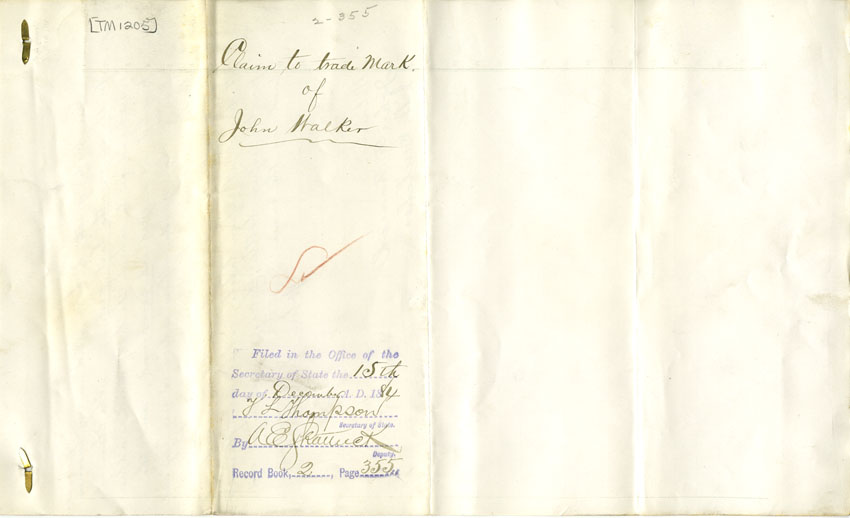 [TM1205]
2-355
Claim to trade Mark.
of
John Walker
Filed in the Office of the
Secretary of State the 15th
day of December A. D. 1884
T L Thompson
Secretary of State.
By A E
Deputy.
Record Book, 2, Page 355